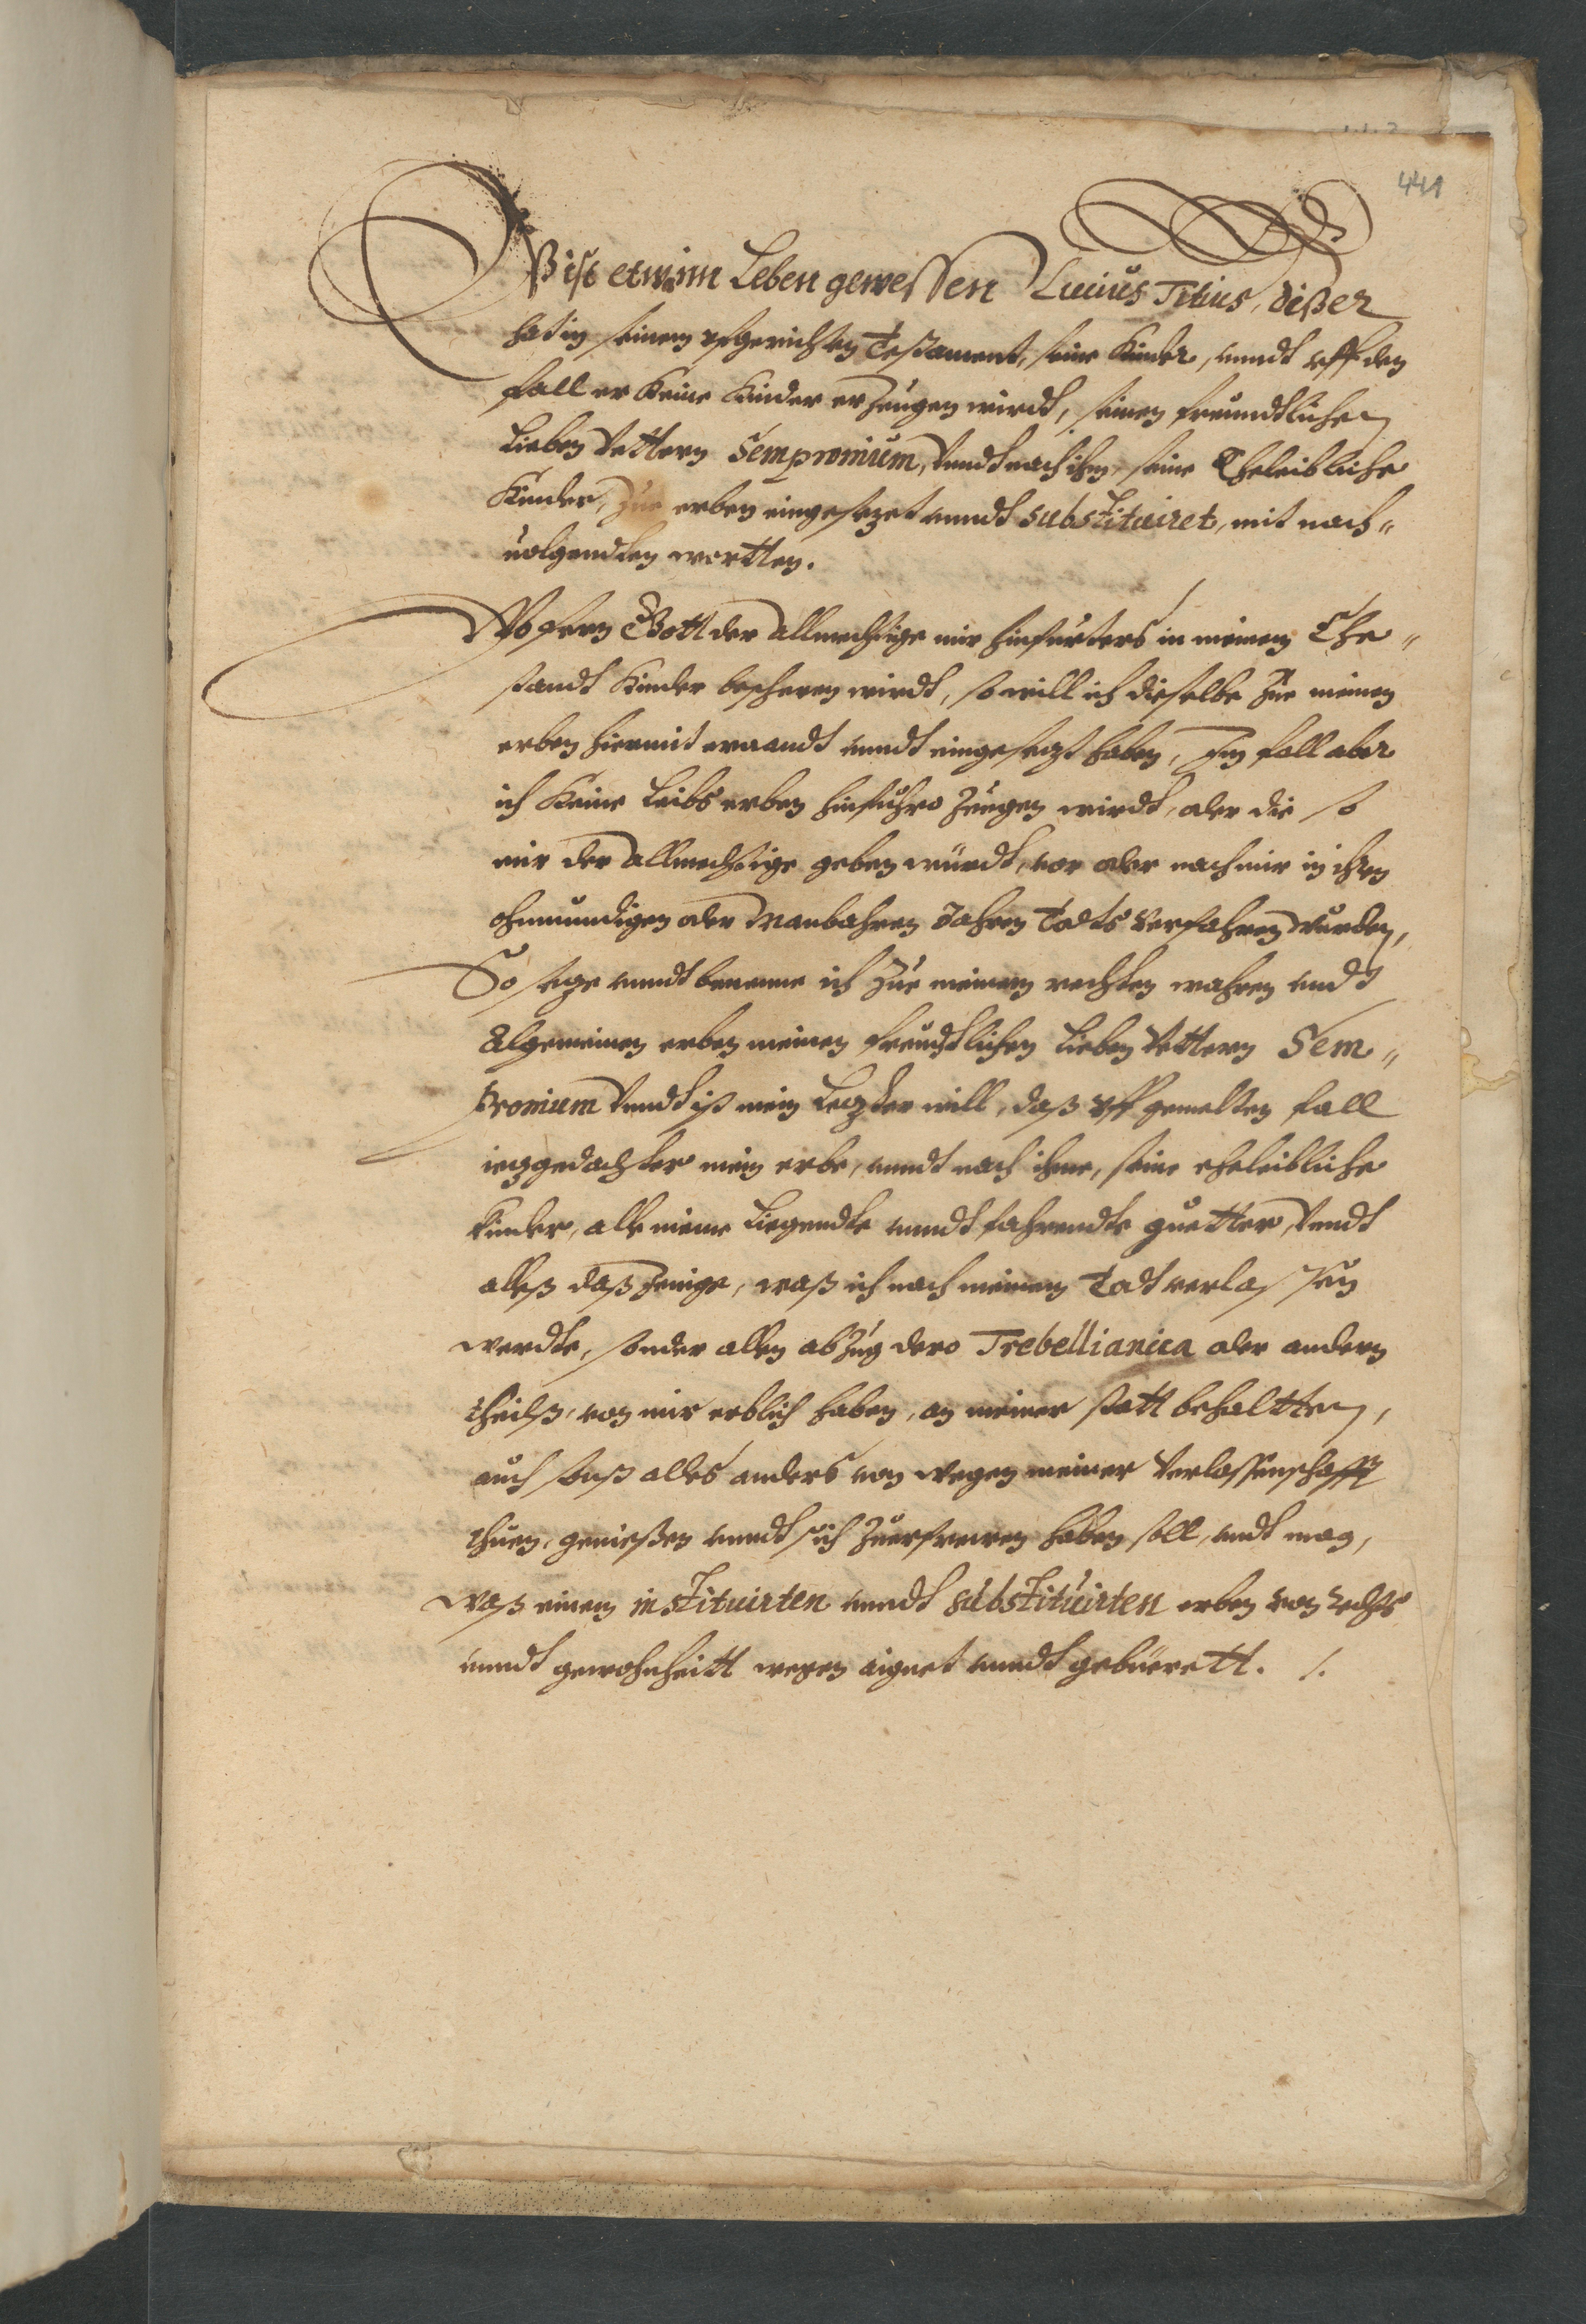 441
Eß ist etwan im Leben gewessen Lucius Titius, dißer
hat in seinem vffgerichten Testament, seine Kinder, vnndt vff den
fall er Keine Kinder erzeugen wirdt, seinen freundtlichen
Lieben Vettern Sempronium, Vnndt nach ihm, seine Eheleibliche
Kinder, zue erben eingesezet vnndt substituiret, mit nach„
uolgendten wortten.
Wofern Gott der Allmechtige mir hinfürters in meinem Ehe„
standt Kinder bescheren wirdt, so will ich dieselbe zue meinen
erben hiermit ernandt vnndt eingesezt haben, Im fall aber
ich Keine Leibs erben hinfuhro zeugen wirdt, oder die so
mir der Allmechtige geben würdt, vor oder nach mir in ihren
ohnmundigen oder Manbahren Jahren Todts verfahren wurden,
So seze vnndt benenne ich zue meinem rechten wahren vndt
Algemeinen erben meinen freundtlichen Lieben Vettern Sem„
pronium Vnndt ist mein Lezter will, daß vff gemelten fall
iezgedachter mein erbe, vnndt nach ihme, seine eheleibliche
Kinder, alle meine Liegendte vnndt fahrendte guetter, Vnndt
alleß daß Jenige, waß ich nach meinem Todt verlassen
werdte, sonder allen abzug dero Trebellianica oder andern
theilß, von mir erblich haben, an meiner statt behaltten,
auch sonst alles anders von wegen meiner Verlassenschafft
thuen, geniessen vnndt sich zuerfrewen haben soll, vndt mag,
waß einem instituirten vnndt substituirten erben von rechts
vnndt gewohnheitt wegen aignet vnndt gebüerett. /.